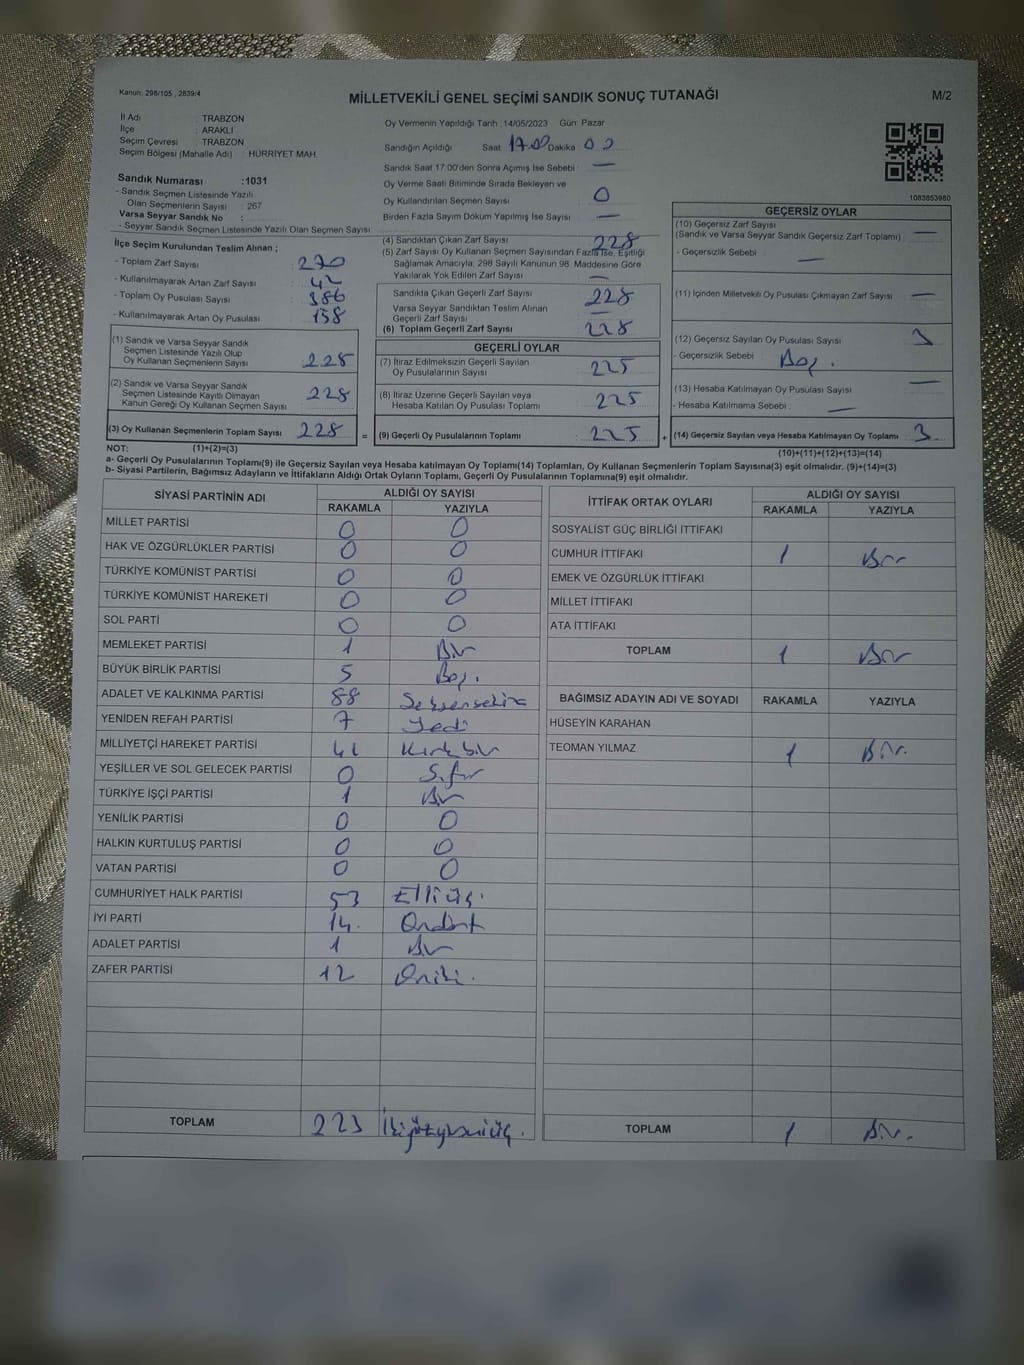 Kanun: 298/105 , 2839/4
MİLLETVEKİLİ GENEL SEÇİMİ SANDIK SONUÇ TUTANAĞI
M/2
İl Adı : TRABZON
İlçe : ARAKLI
Seçim Çevresi : TRABZON
Seçim Bölgesi (Mahalle Adı) : HÜRRİYET MAH.
Sandık Numarası :1031
- Sandık Seçmen Listesinde Yazılı
Olan Seçmenlerin Sayısı : 267
Varsa Seyyar Sandık No :
- Seyyar Sandık Seçmen Listesinde Yazılı Olan Seçmen Sayısı :
Oy Vermenin Yapıldığı Tarih : 14/05/2023 Gün: Pazar
Sandığın Açıldığı Saat: 17.00 Dakika 00
Sandık Saat 17:00'den Sonra Açımış İse Sebebi : —
Oy Verme Saati Bitiminde Sırada Bekleyen ve
Oy Kullandırılan Seçmen Sayısı : 0
Birden Fazla Sayım Döküm Yapılmış İse Sayısı : —
1083853980
İlçe Seçim Kurulundan Teslim Alınan ;
- Toplam Zarf Sayısı : 270
- Kullanılmayarak Artan Zarf Sayısı : 42
- Toplam Oy Pusulası Sayısı : 386
- Kullanılmayarak Artan Oy Pusulası : 158
(1) Sandık ve Varsa Seyyar Sandık
Seçmen Listesinde Yazılı Olup
Oy Kullanan Seçmenlerin Sayısı : 228
(2) Sandık ve Varsa Seyyar Sandık
Seçmen Listesinde Kayıtlı Olmayan
Kanun Gereği Oy Kullanan Seçmen Sayısı : 228
(3) Oy Kullanan Seçmenlerin Toplam Sayısı : 228
(4) Sandıktan Çıkan Zarf Sayısı : 228
(5) Zarf Sayısı Oy Kullanan Seçmen Sayısından Fazla İse, Eşitliği
Sağlamak Amacıyla; 298 Sayılı Kanunun 98. Maddesine Göre
Yakılarak Yok Edilen Zarf Sayısı : —
Sandıkta Çıkan Geçerli Zarf Sayısı : 228
Varsa Seyyar Sandıktan Teslim Alınan
Geçerli Zarf Sayısı : —
(6) Toplam Geçerli Zarf Sayısı : 228
GEÇERLİ OYLAR
(7) İtiraz Edilmeksizin Geçerli Sayılan
Oy Pusulalarının Sayısı : 225
(8) İtiraz Üzerine Geçerli Sayılan veya
Hesaba Katılan Oy Pusulası Toplamı : 225
= (9) Geçerli Oy Pusulalarının Toplamı : 225
GEÇERSİZ OYLAR
(10) Geçersiz Zarf Sayısı
(Sandık ve Varsa Seyyar Sandık Geçersiz Zarf Toplamı) : —
- Geçersizlik Sebebi : —
(11) İçinden Milletvekili Oy Pusulası Çıkmayan Zarf Sayısı : —
(12) Geçersiz Sayılan Oy Pusulası Sayısı : 3
- Geçersizlik Sebebi : Boş.
(13) Hesaba Katılmayan Oy Pusulası Sayısı : —
- Hesaba Katılmama Sebebi : —
+ (14) Geçersiz Sayılan veya Hesaba Katılmayan Oy Toplamı : 3
NOT: (1)+(2)=(3)
(10)+(11)+(12)+(13)=(14)
a- Geçerli Oy Pusulalarının Toplamı(9) ile Geçersiz Sayılan veya Hesaba katılmayan Oy Toplamı(14) Toplamları, Oy Kullanan Seçmenlerin Toplam Sayısına(3) eşit olmalıdır. (9)+(14)=(3)
b- Siyasi Partilerin, Bağımsız Adayların ve İttifakların Aldığı Ortak Oyların Toplamı, Geçerli Oy Pusulalarının Toplamına(9) eşit olmalıdır.
SİYASİ PARTİNİN ADI ALDIĞI OY SAYISI
RAKAMLA YAZIYLA
MİLLET PARTİSİ 0 0
HAK VE ÖZGÜRLÜKLER PARTİSİ 0 0
TÜRKİYE KOMÜNİST PARTİSİ 0 0
TÜRKİYE KOMÜNİST HAREKETİ 0 0
SOL PARTİ 0 0
MEMLEKET PARTİSİ 1 Bir
BÜYÜK BİRLİK PARTİSİ 5 Beş.
ADALET VE KALKINMA PARTİSİ 88 Seksensekiz
YENİDEN REFAH PARTİSİ 7 Yedi
MİLLİYETÇİ HAREKET PARTİSİ 41 Kırk bir
YEŞİLLER VE SOL GELECEK PARTİSİ 0 Sıfır
TÜRKİYE İŞÇİ PARTİSİ 1 Bir
YENİLİK PARTİSİ 0 0
HALKIN KURTULUŞ PARTİSİ 0 0
VATAN PARTİSİ 0 0
CUMHURİYET HALK PARTİSİ 53 Elliüç.
İYİ PARTİ 14. Ondört
ADALET PARTİSİ 1 Bir
ZAFER PARTİSİ 12 Oniki.
TOPLAM 223 İkiyüzyirmiüç.
İTTİFAK ORTAK OYLARI ALDIĞI OY SAYISI
RAKAMLA YAZIYLA
SOSYALİST GÜÇ BİRLİĞİ İTTİFAKI
CUMHUR İTTİFAKI 1 Bir
EMEK VE ÖZGÜRLÜK İTTİFAKI
MİLLET İTTİFAKI
ATA İTTİFAKI
TOPLAM 1 Bir
BAĞIMSIZ ADAYIN ADI VE SOYADI RAKAMLA YAZIYLA
HÜSEYİN KARAHAN
TEOMAN YILMAZ 1 Bir.
TOPLAM 1 Bir.